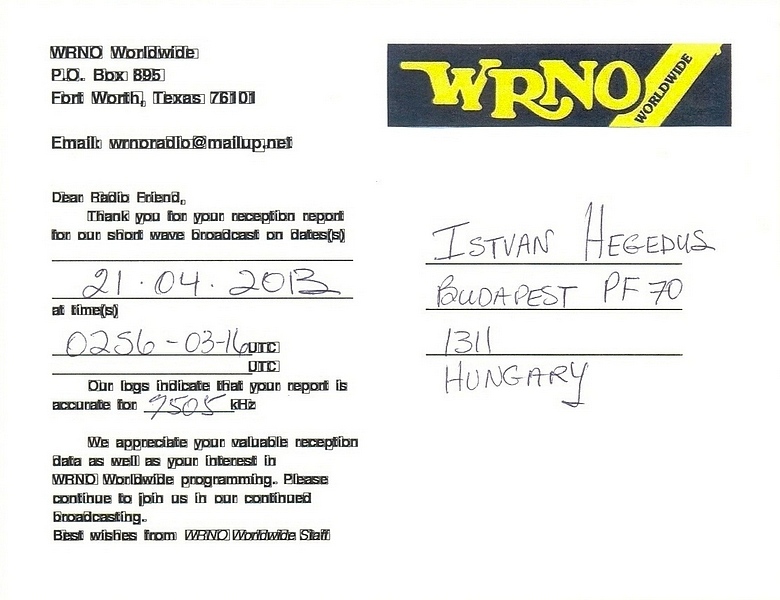 WRNO Worldwide
P.O. Box 895
Fort Worth, Texas 76101
Email: wrnoradio@mailup.net
Dear Radio Friend,
Thank you for your reception report
for our short wave broadcast on dates(s)
21.04.2013
at time(s)
0256-03-16 UTC
UTC
Our logs indicate that your report is
accurate for 7505 kHz
We appreciate your valuable reception
data as well as your interest in
WRNO Worldwide programming. Please
continue to join us in our continued
broadcasting.
Best wishes from WRNO Worldwide Staff
WRNO WORLDWIDE
ISTVAN HEGEDUS
BUDAPEST PF 70
1311
HUNGARY